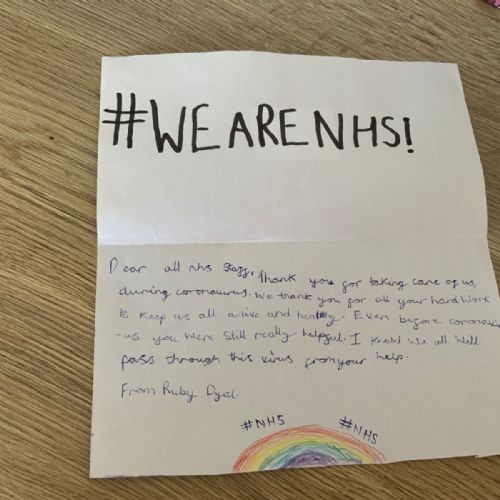 #WE ARE NHS!
Dear all nhs staff, Thank you for taking care of us,
during coronavirus. We thank you for all your hard work
to keep us all alive and healthy. Even before coronavir
-us you were still really helpful. I know we all will
pass through this virus from your help.
From Ruby Dyal.
#NHS #NHS